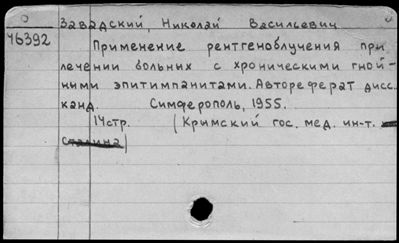 Завадский, Николай Васильевич
46392
Применение рентгеноблучения при
лечении больных с хроническими гной-
ними эпитимпанитами. Автореферат дисс.
канд. Симферополь, 1955.
14стр. (Кримский гос. мед. ин-т.
Сталина)